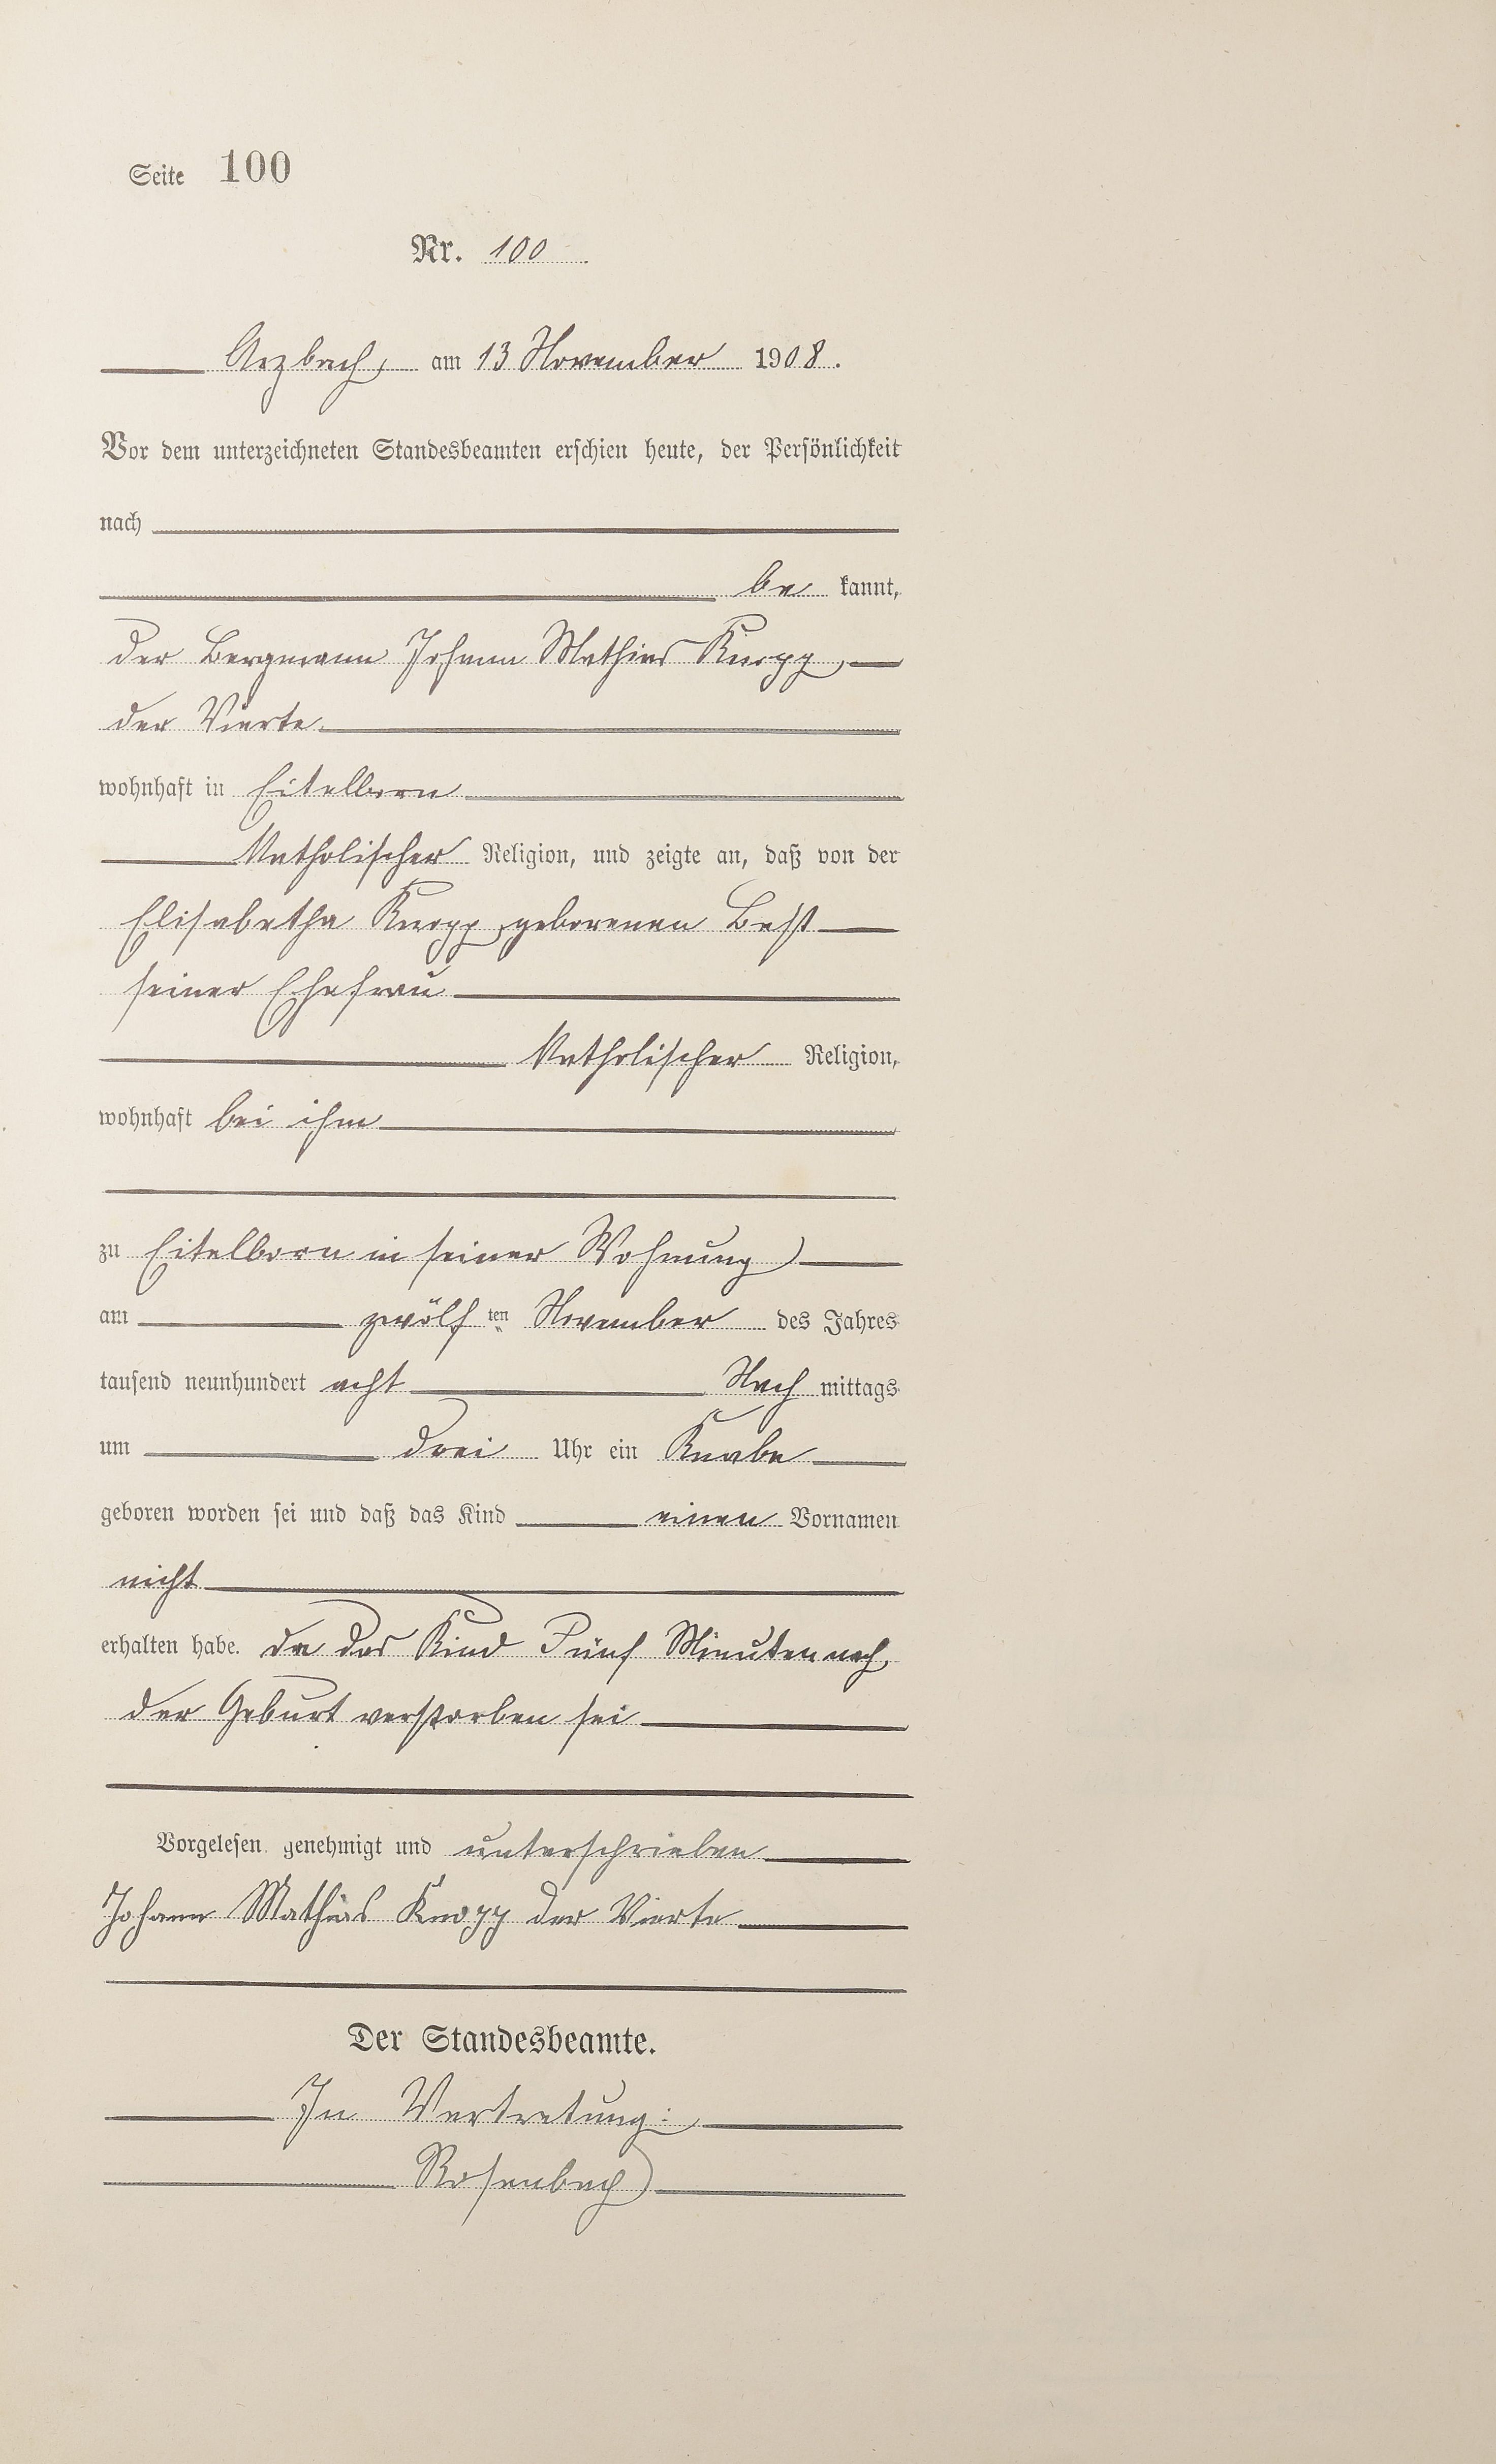 Seite 100
Nr. 100
Arzbach, am 13 November 1908.
Vor dem unterzeichneten Standesbeamten erschien heute, der Persönlichkeit
nach
be kannt,
der Bergmann Johann Mathias Knopp,
der Vierte
wohnhaft in Eitelborn
Katholischer Religion, und zeigte an, daß von der
Elisabetha Knopp, geborenen Best
seiner Ehefrau
Katholischer Religion,
wohnhaft bei ihm
zu Eitelborn in seiner Wohnung
am zwölf ten November des Jahres
tausend neunhundert acht Nach mittags
um drei Uhr ein Knabe
geboren worden sei und daß das Kind einen Vornamen
nicht
erhalten habe. da das Kind Fünf Minuten nach
der Geburt verstorben sei
Vorgelesen, genehmigt und unterschrieben
Johann Mathias Knopp der Vierte
Der Standesbeamte.
In Vertretung:
Rosenbach